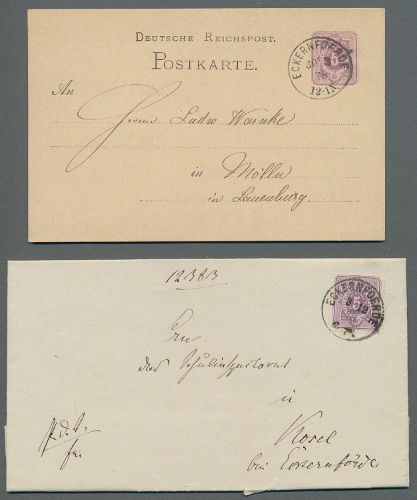 DEUTSCHE REICHSPOST.
POSTKARTE.
ECKERNFOERDE
30 3
78
12-1N.
An
Herrn Ludw Warnke
in Mölln
in Lauenburg.
12383
ECKERNFOERDE
An
das Schulinspectorat
in
Kosel
bei Eckernförde
frei